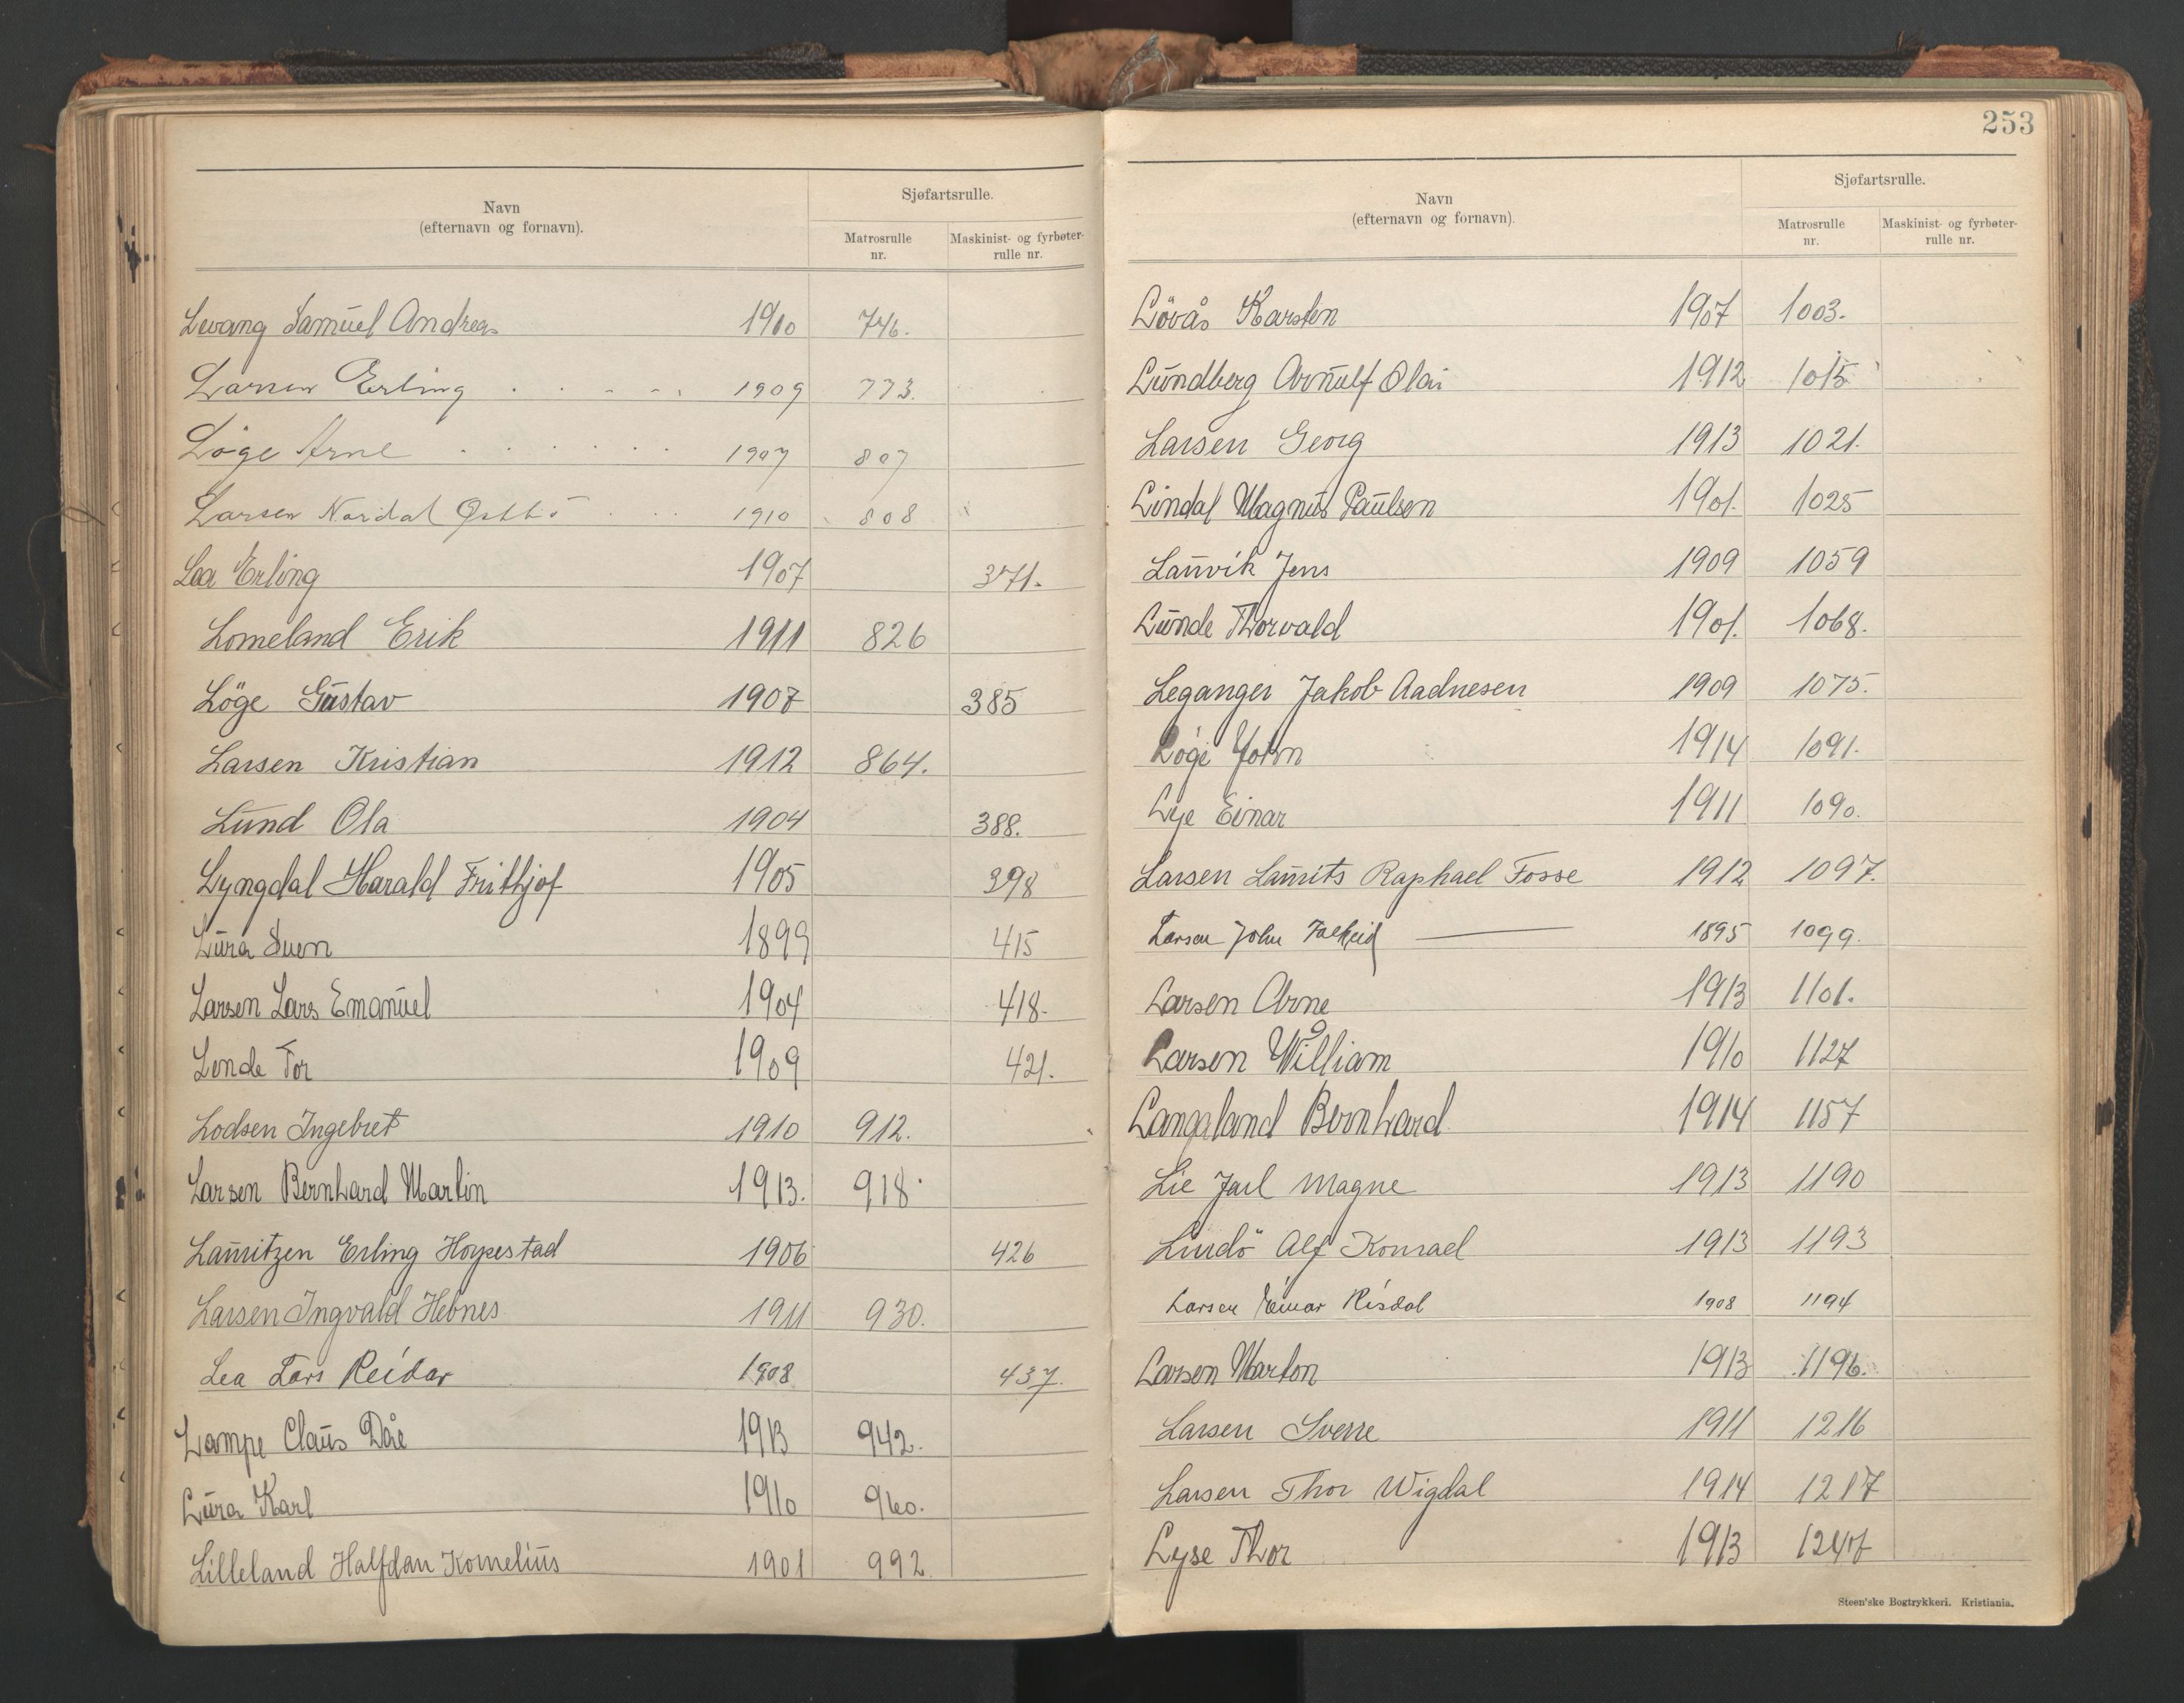 Navn
(efternavn og fornavn).
Sjøfartsrulle.
Matrosrulle nr.
Maskinist- og fyrbøter-rulle nr.
Levang Samuel Andreas 1910 746.
Larsen Erling 1909 773.
Løge Arne 1907 807
Larsen Nordal 1910 808
Lea Erling 1907 371.
Lomeland Erik 1911 826
Löge Gustav 1907 385
Larsen Kristian 1912 864.
Lund Ola 1904 388.
Lyngdal Harald Frithjof 1905 398
Lura Sven 1899 415
Larsen Lars Emanuel 1904 418.
Lende Tor 1909 421.
Lodsen Ingebret 1910 912.
Larsen Bernhard Martin 1913. 918.
Lauritzen Erling Hopestad 1906 426
Larsen Ingvald Hebnes 1911 930.
Lea Lars Reidar 1908 437.
Lampe Claus Dåe 1913 942.
Lura Karl 1910 960.
Lilleland Halfdan Kornelius 1901 992.
253
Navn
(efternavn og fornavn).
Sjøfartsrulle.
Matrosrulle nr.
Maskinist- og fyrbøter-rulle nr.
Lövås Karsten 1907 1003.
Lundberg Arnulf Olai 1912 1015
Larsen Georg 1913 1021.
Lindal Magnus Paulsen 1901. 1025
Lauvik Jens 1909 1059
Lunde Thorvald 1901. 1068.
Leganger Jakob Aadnesen 1909 1075.
Løge John 1914 1091.
Lye Einar 1911 1090.
Larsen Laurits Raphael Fosse 1912 1097.
Larsen John Falkeid 1895 1099.
Larsen Arne 1913 1101.
Larsen William 1910 1127
Langaland Bernhard 1914 1157
Lie Jarl Magne 1913 1190
Lindö Alf Konrad 1913 1193
Larsen Einar Risdal 1908 1194
Larsen Marton 1913 1196.
Larsen Sverre 1911 1216
Larsen Thor Wigdal 1914 1217
Lyse Thor 1913
Steen'ske Bogtrykkeri. Kristiania.